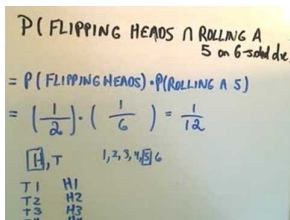 P( FLIPPING HEADS ∩ ROLLING A
5 on 6-sided die
= P( FLIPPING HEADS) · P(ROLLING A 5)
= (1/2) · (1/6) = 1/12
H, T 1, 2, 3, 4, 5 6
T1 H1
T2 H2
T3 H3